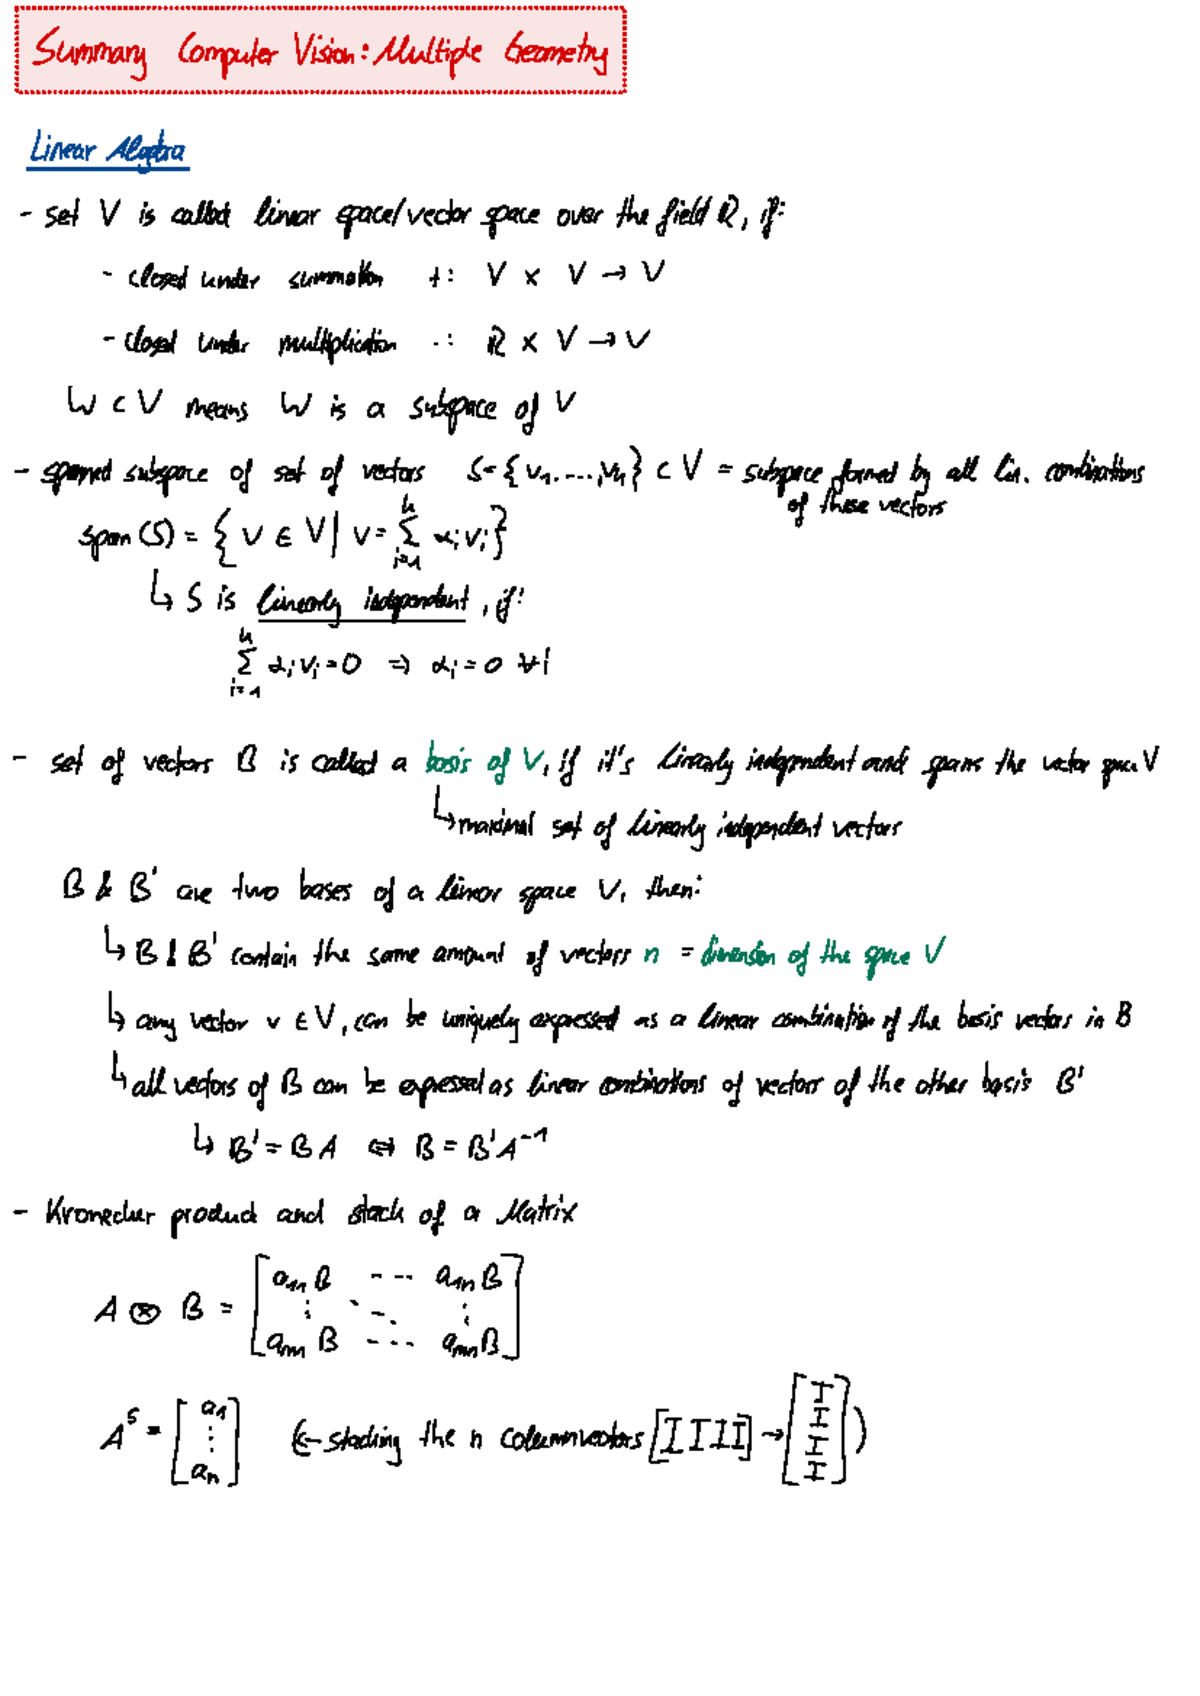 Summary Computer Vision: Multiple Geometry
Linear Algebra
- set V is called linear space/vector space over the field ℝ, if:
- closed under summation +: V × V → V
- closed under multiplication ·: ℝ × V → V
W ⊂ V means W is a subspace of V
- spanned subspace of set of vectors S={v₁....,vₖ} ⊂ V = subspace formed by all lin. combinations
of these vectors
span(S) = { v ∈ V | v = ∑_{i=1}^{k} αᵢvᵢ }
↳ S is linearly independent, if:
∑_{i=1}^{k} αᵢvᵢ = 0 ⇒ αᵢ = 0 ∀i
- set of vectors B is called a basis of V, if it's linearly independent and spans the vector space V
↳ maximal set of linearly independent vectors
B & B' are two bases of a linear space V, then:
↳ B & B' contain the same amount of vectors n = dimension of the space V
↳ any vector v ∈ V, can be uniquely expressed as a linear combination of the basis vectors in B
↳ all vectors of B can be expressed as linear combinations of vectors of the other basis B'
↳ B' = BA ⇔ B = B'A⁻¹
- Kronecker product and stack of a Matrix
A ⊗ B = [a₁₁B ---- a₁ₙB ⋮ ⋱ ⋮ aₘ₁B ---- aₘₙB]
Aˢ = [a₁ ⋮ aₙ] (← stacking the n columnvectors [I I I I] → [I I I I])